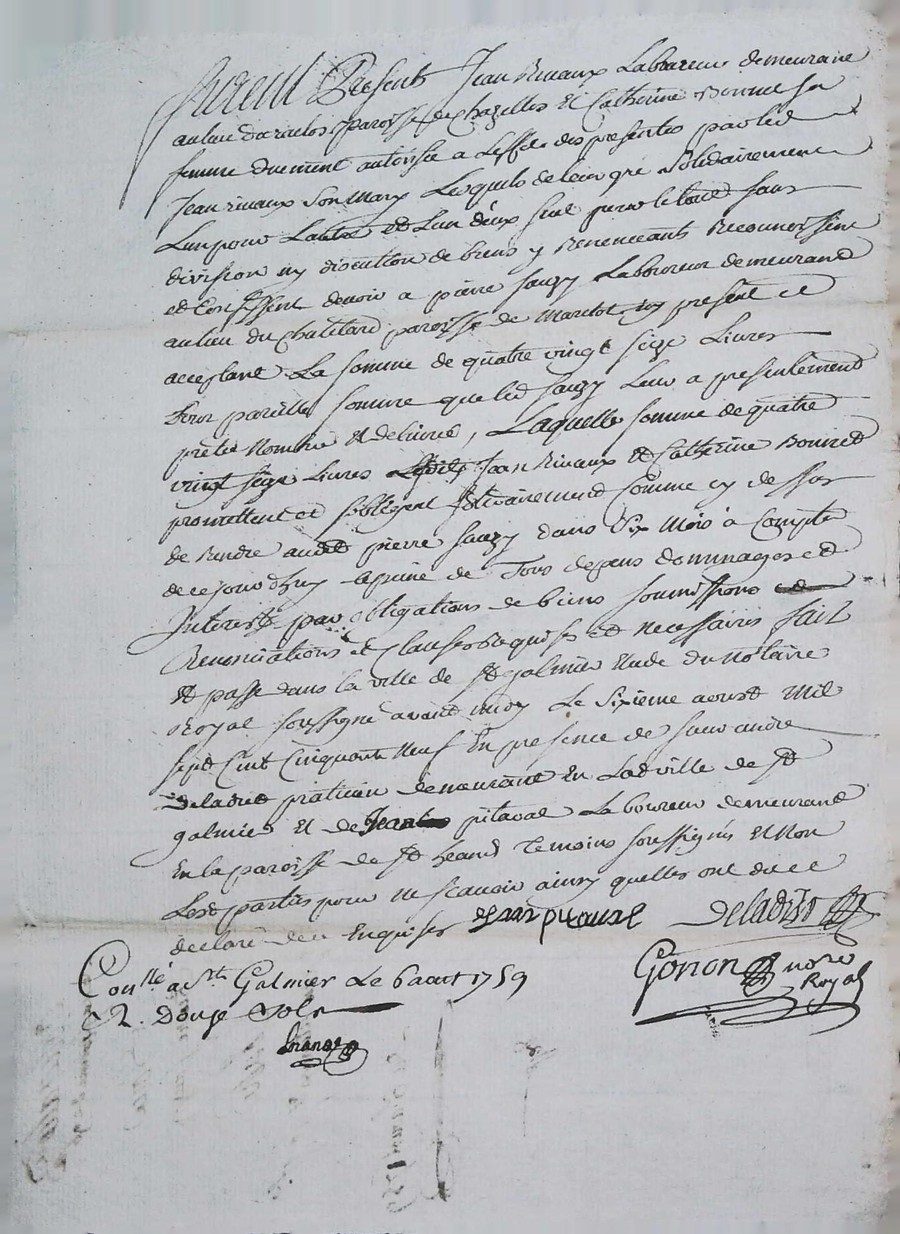 furent Presents Jean Rivaux Laboureur demeurant
au lieu du paroisse de Chazelles Et Catherine Bonnet sa
femme duement autorisée a Leffet des presentes par led
Jean rivaux Son Mary Lesquels de leur gré Solidairement
Lun pour Lautre et Lun deux seul pour le tout sans
division ny discution de biens y Renonceants Reconnoissent
et Confessent devoir a pierre sauzy Laboureur demeurand
au lieu du Chatelard paroisse de Marclot icy present et
acceptant La somme de quatre vingt seize Livres
Pour pareille somme que led sauzy Leur a presentement
preté Nombré Et delivré, Laquelle somme de quatre
vingt seize Livres Lesdits Jean Rivaux Et Catherine Bonnet
promettent et sobligent solidairement comme cy dessus
de Rendre audit pierre sauzy dans six Mois a Compter
de ce jourdhuy a peine de Tous depens dommages et
Interests par obligations de biens soumissions et
Renonciations et Clauses Requises et necessaires fait
Et passé dans la ville de st galmier Etude du Notaire
Royal soussigné avant midy Le sixieme aoust Mil
sept Cent Cinquante Neuf En presence de sieur andre
deladret praticien demeurant En Lad ville de st
galmier Et de Jean pitaval Laboureur demeurand
En la paroisse de st heand Temoins soussignés Et Non
Lesd parties pour ne scavoir ainsy quelles ont dit et
declaré de ce Enquises Jean pitaval
Gonon nore
Royal
Conllé a St Galmier Le 6 aout 1759
R. Douze Sols